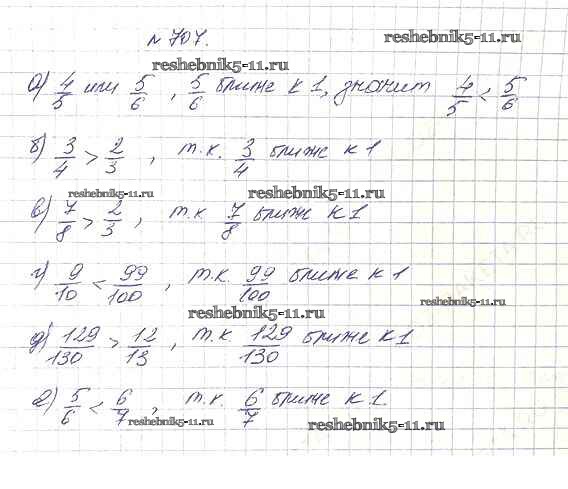 № 707.
reshebnik5-11.ru
reshebnik5-11.ru
а) 4/5 или 5/6, 5/6 ближе к 1, значит 4/5 < 5/6
б) 3/4 > 2/3, т.к. 3/4 ближе к 1
reshebnik5-11.ru
reshebnik5-11.ru
в) 7/8 > 2/3, т.к 7/8 ближе к 1
г) 9/10 < 99/100, т.к. 99/100 ближе к 1
reshebnik5-11.ru
reshebnik5-11.ru
д) 129/130 > 12/13, т.к. 129/130 ближе к 1
е) 5/6 < 6/7, т.к. 6/7 ближе к 1.
reshebnik5-11.ru
reshebnik5-11.ru